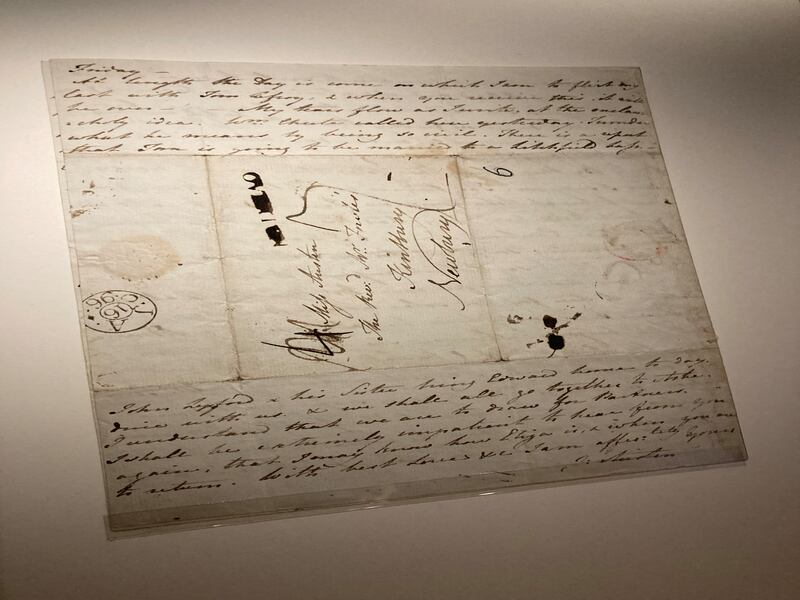 Friday. —
At length the Day is come on which I am to flirt my
last with Tom Lefroy, & when you receive this it will
be over — My tears flow as I write, at the melan-
-choly idea. Wm. Chute called here yesterday. I wonder
what he means by being so civil. There is a report
that Tom is going to be married to a Litchfield Lass.
Miss Austen
The Revd. Mr. Fowle's
Kintbury
Newbury
6
JA
96
John Lyford & his Sister bring Edward home to day,
dine with us, & we shall all go together to Ashe.
I understand that we are to draw for Partners.
I shall be extremely impatient to hear from you
again, that I may know how Eliza is, & when you are
to return. With best Love &c I am affec:tely Yours
J: Austen